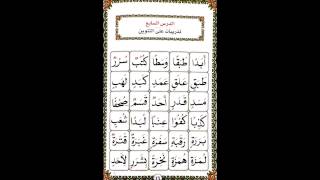 الدرس السابع
تدريبات على التنوين
أَبَدًا طَبَقًا وَسَطًا كُتُبٌ سُرُرٌ
طَبَقٍ عَلَقٍ عَمَدٍ كَبَدٍ لَهَبٍ
مَسَدٍ قَدَرٍ أَحَدٌ قَسَمٌ صُحُفًا
كَذِبًا كُفُوًا عِنَبًا لُبَدًا شُعَبٍ
بَرَرَةٍ رَقَبَةٍ سَفَرَةٍ غَبَرَةٌ قَتَرَةٌ
لُمَزَةٍ هُمَزَةٍ نَخِرَةً بَشَرٌ لِأَحَدٍ